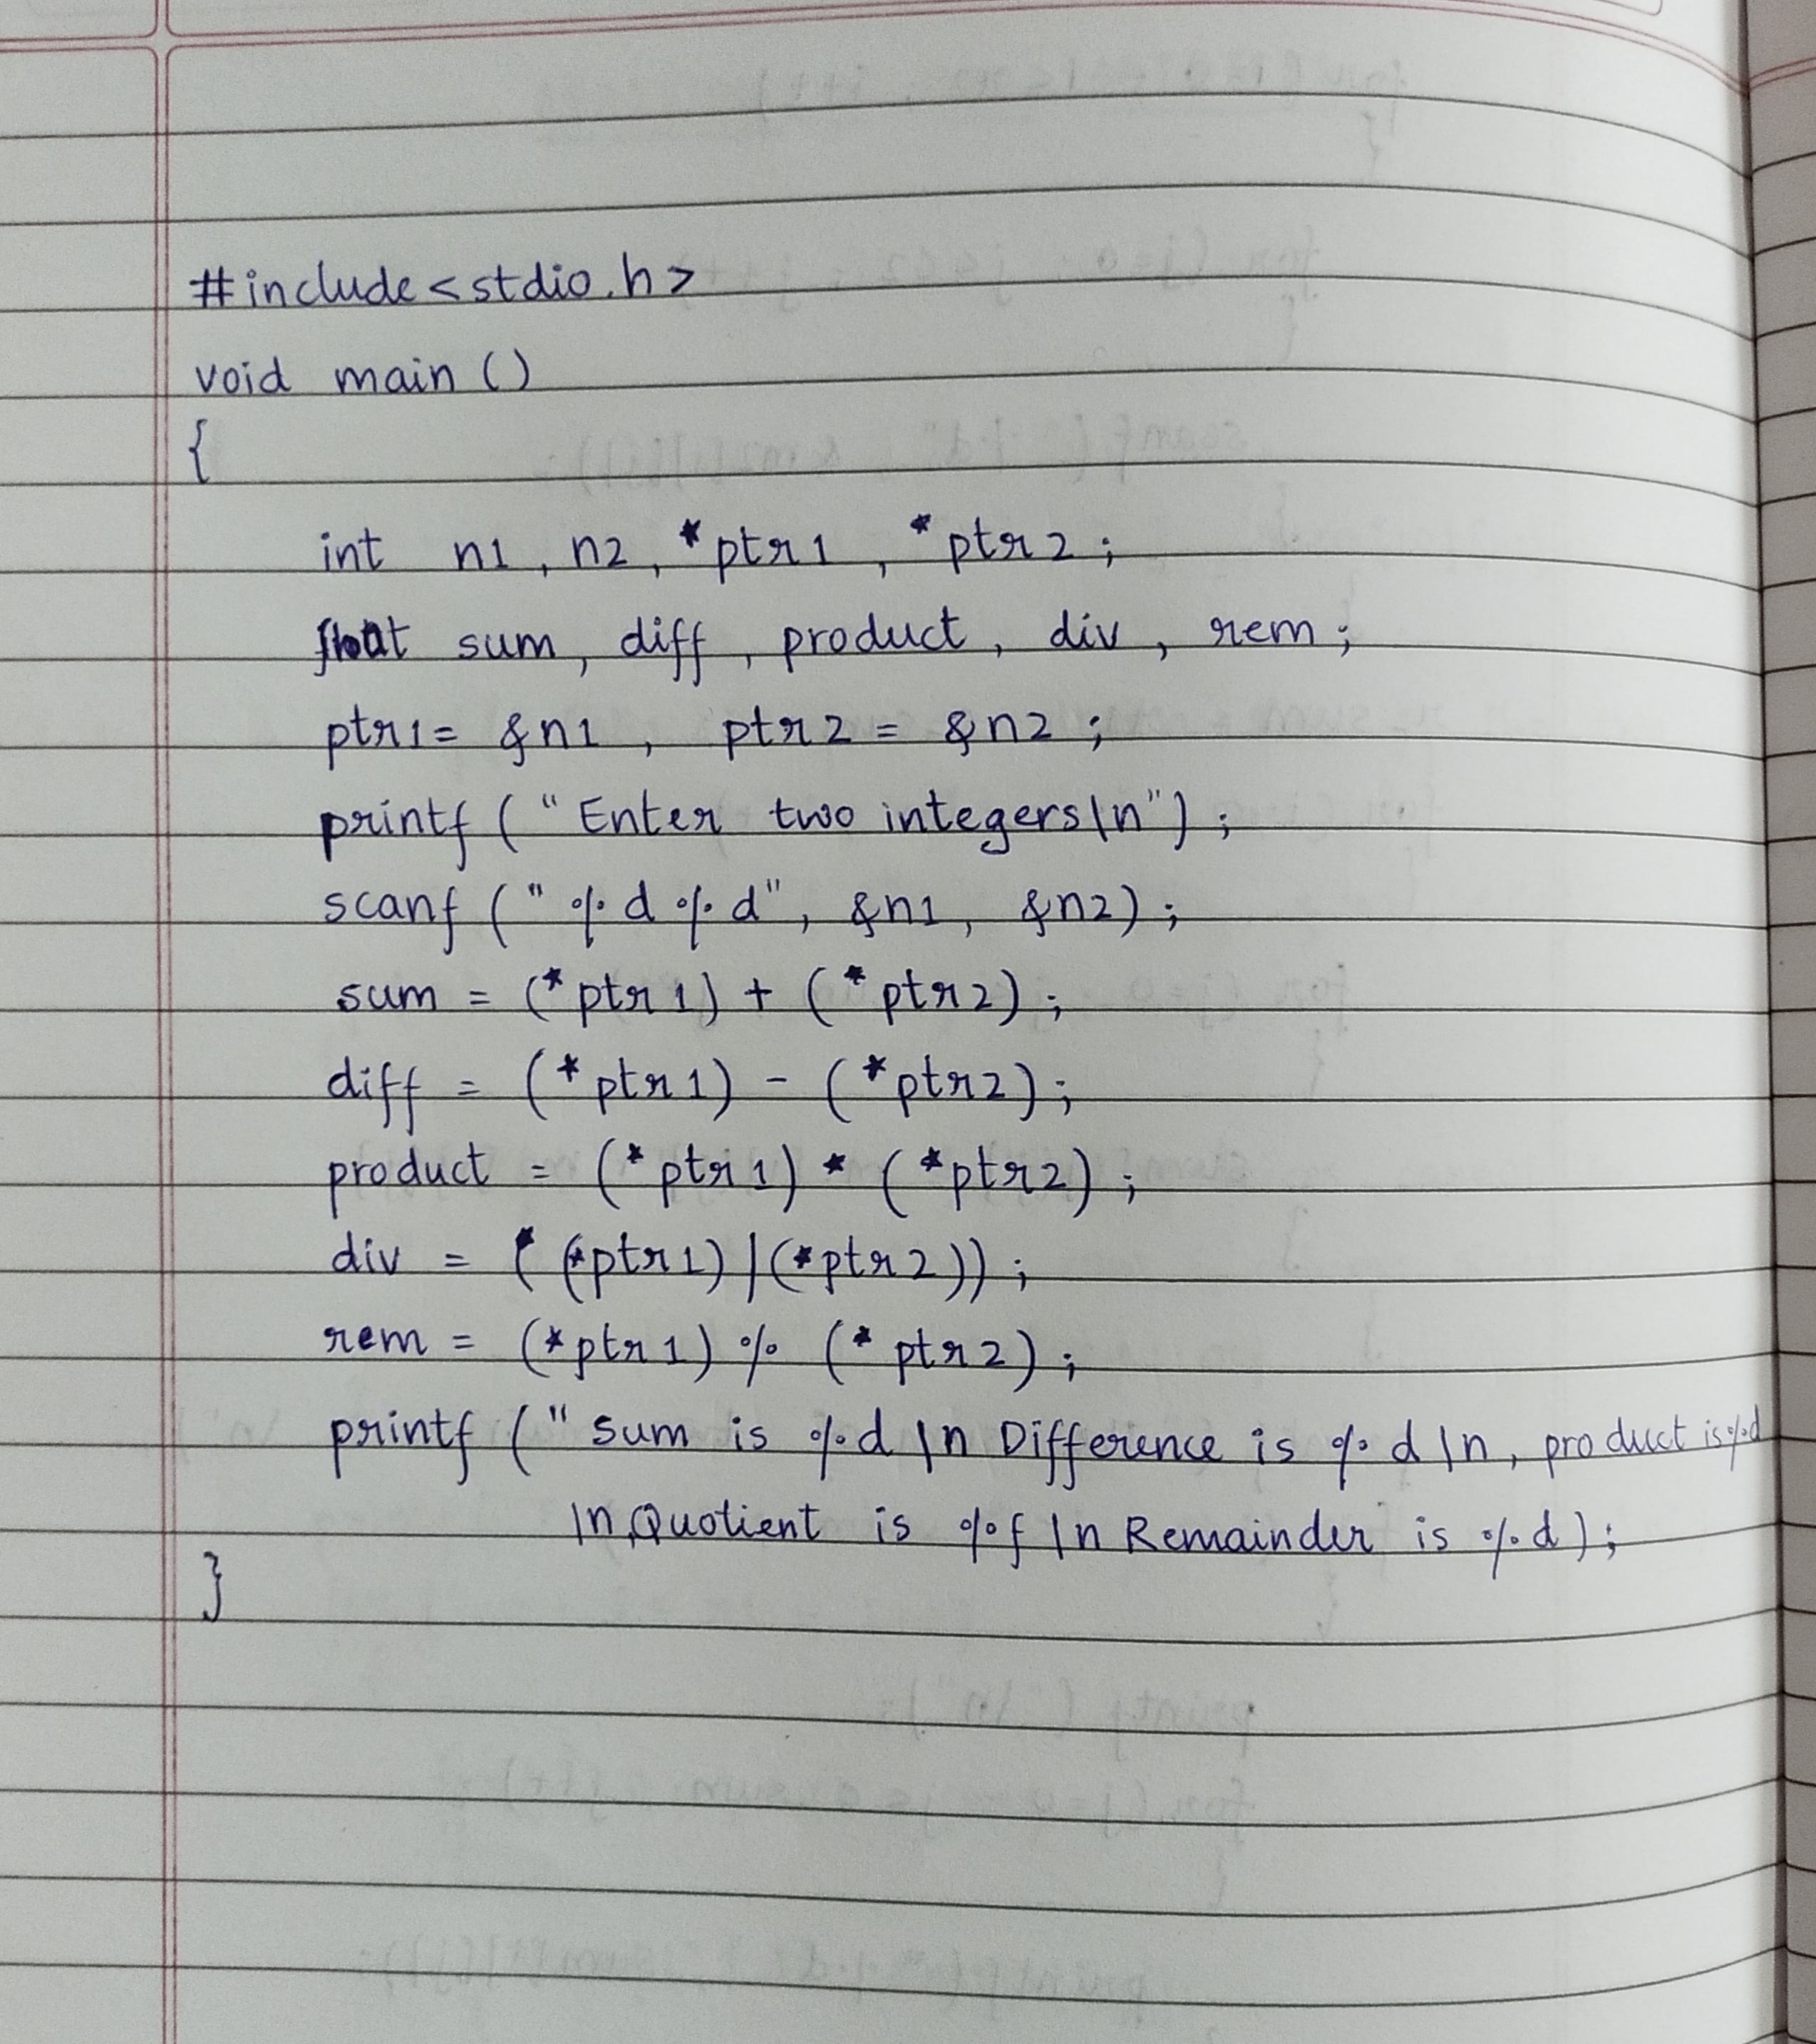 #include<stdio.h>
void main()
{
int n1, n2, *ptr1, *ptr2;
float sum, diff, product, div, rem;
ptr1= &n1, ptr2 = &n2;
printf ("Enter two integers\n");
scanf ("%d%d", &n1, &n2);
sum = (*ptr1) + (*ptr2);
diff = (*ptr1) - (*ptr2);
product = (*ptr1) * (*ptr2);
div = ((*ptr1)/(*ptr2));
rem = (*ptr1) % (*ptr2);
printf ("sum is %d \n Difference is %d \n, product is %d
\n, Quotient is %f \n Remainder is %d);
}